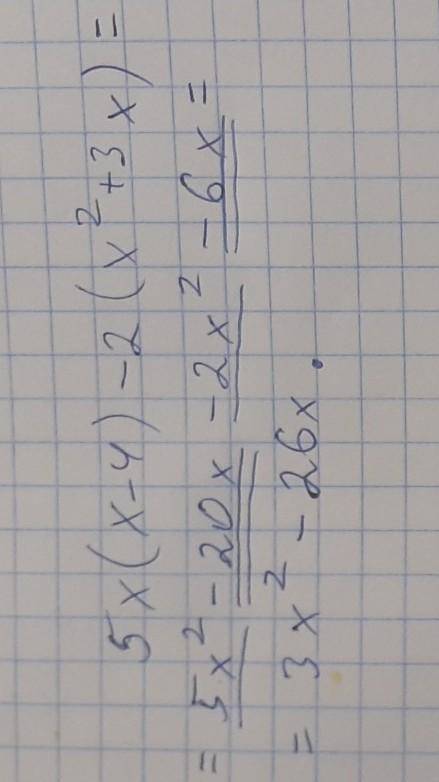 5x(x-4)-2(x²+3x)=
=5x²-20x-2x²-6x=
=3x²-26x.